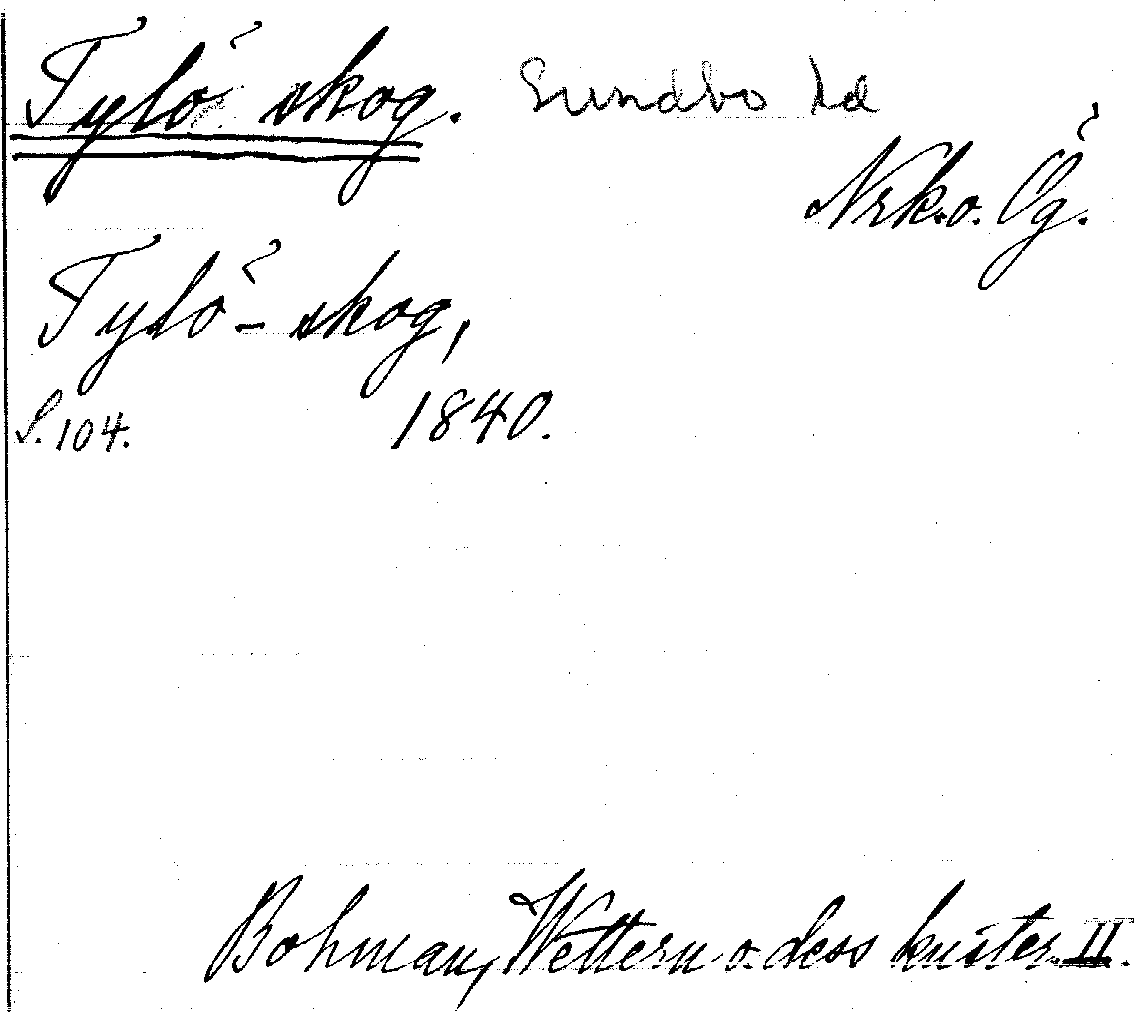 Tylö skog. Sundbo hd
Nrk. o. Ög.
Tylö-skog,
S. 104. 1840.
Bohman, Wettern o. dess kuster. II.